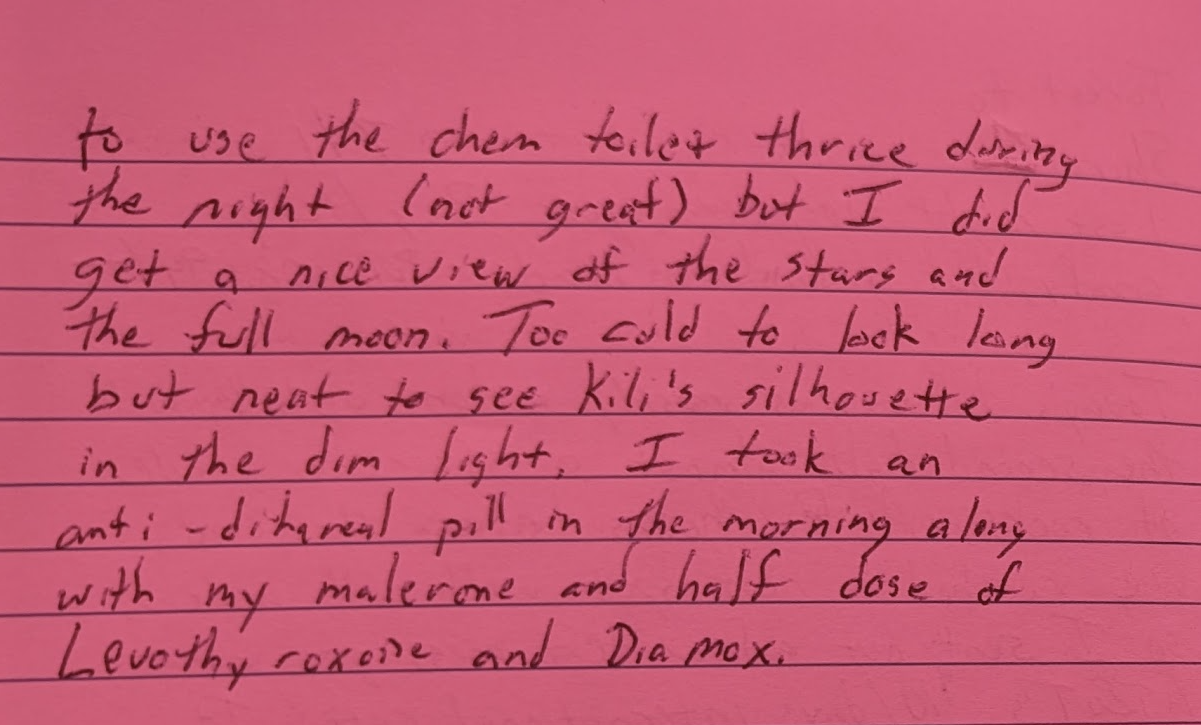 to use the chem toilet thrice during
the night (not great) but I did
get a nice view of the stars and
the full moon. Too cold to look long
but neat to see Kili's silhouette
in the dim light. I took an
anti-dihareal pill in the morning along
with my malerone and half dose of
Levothyroxoine and Diamox.